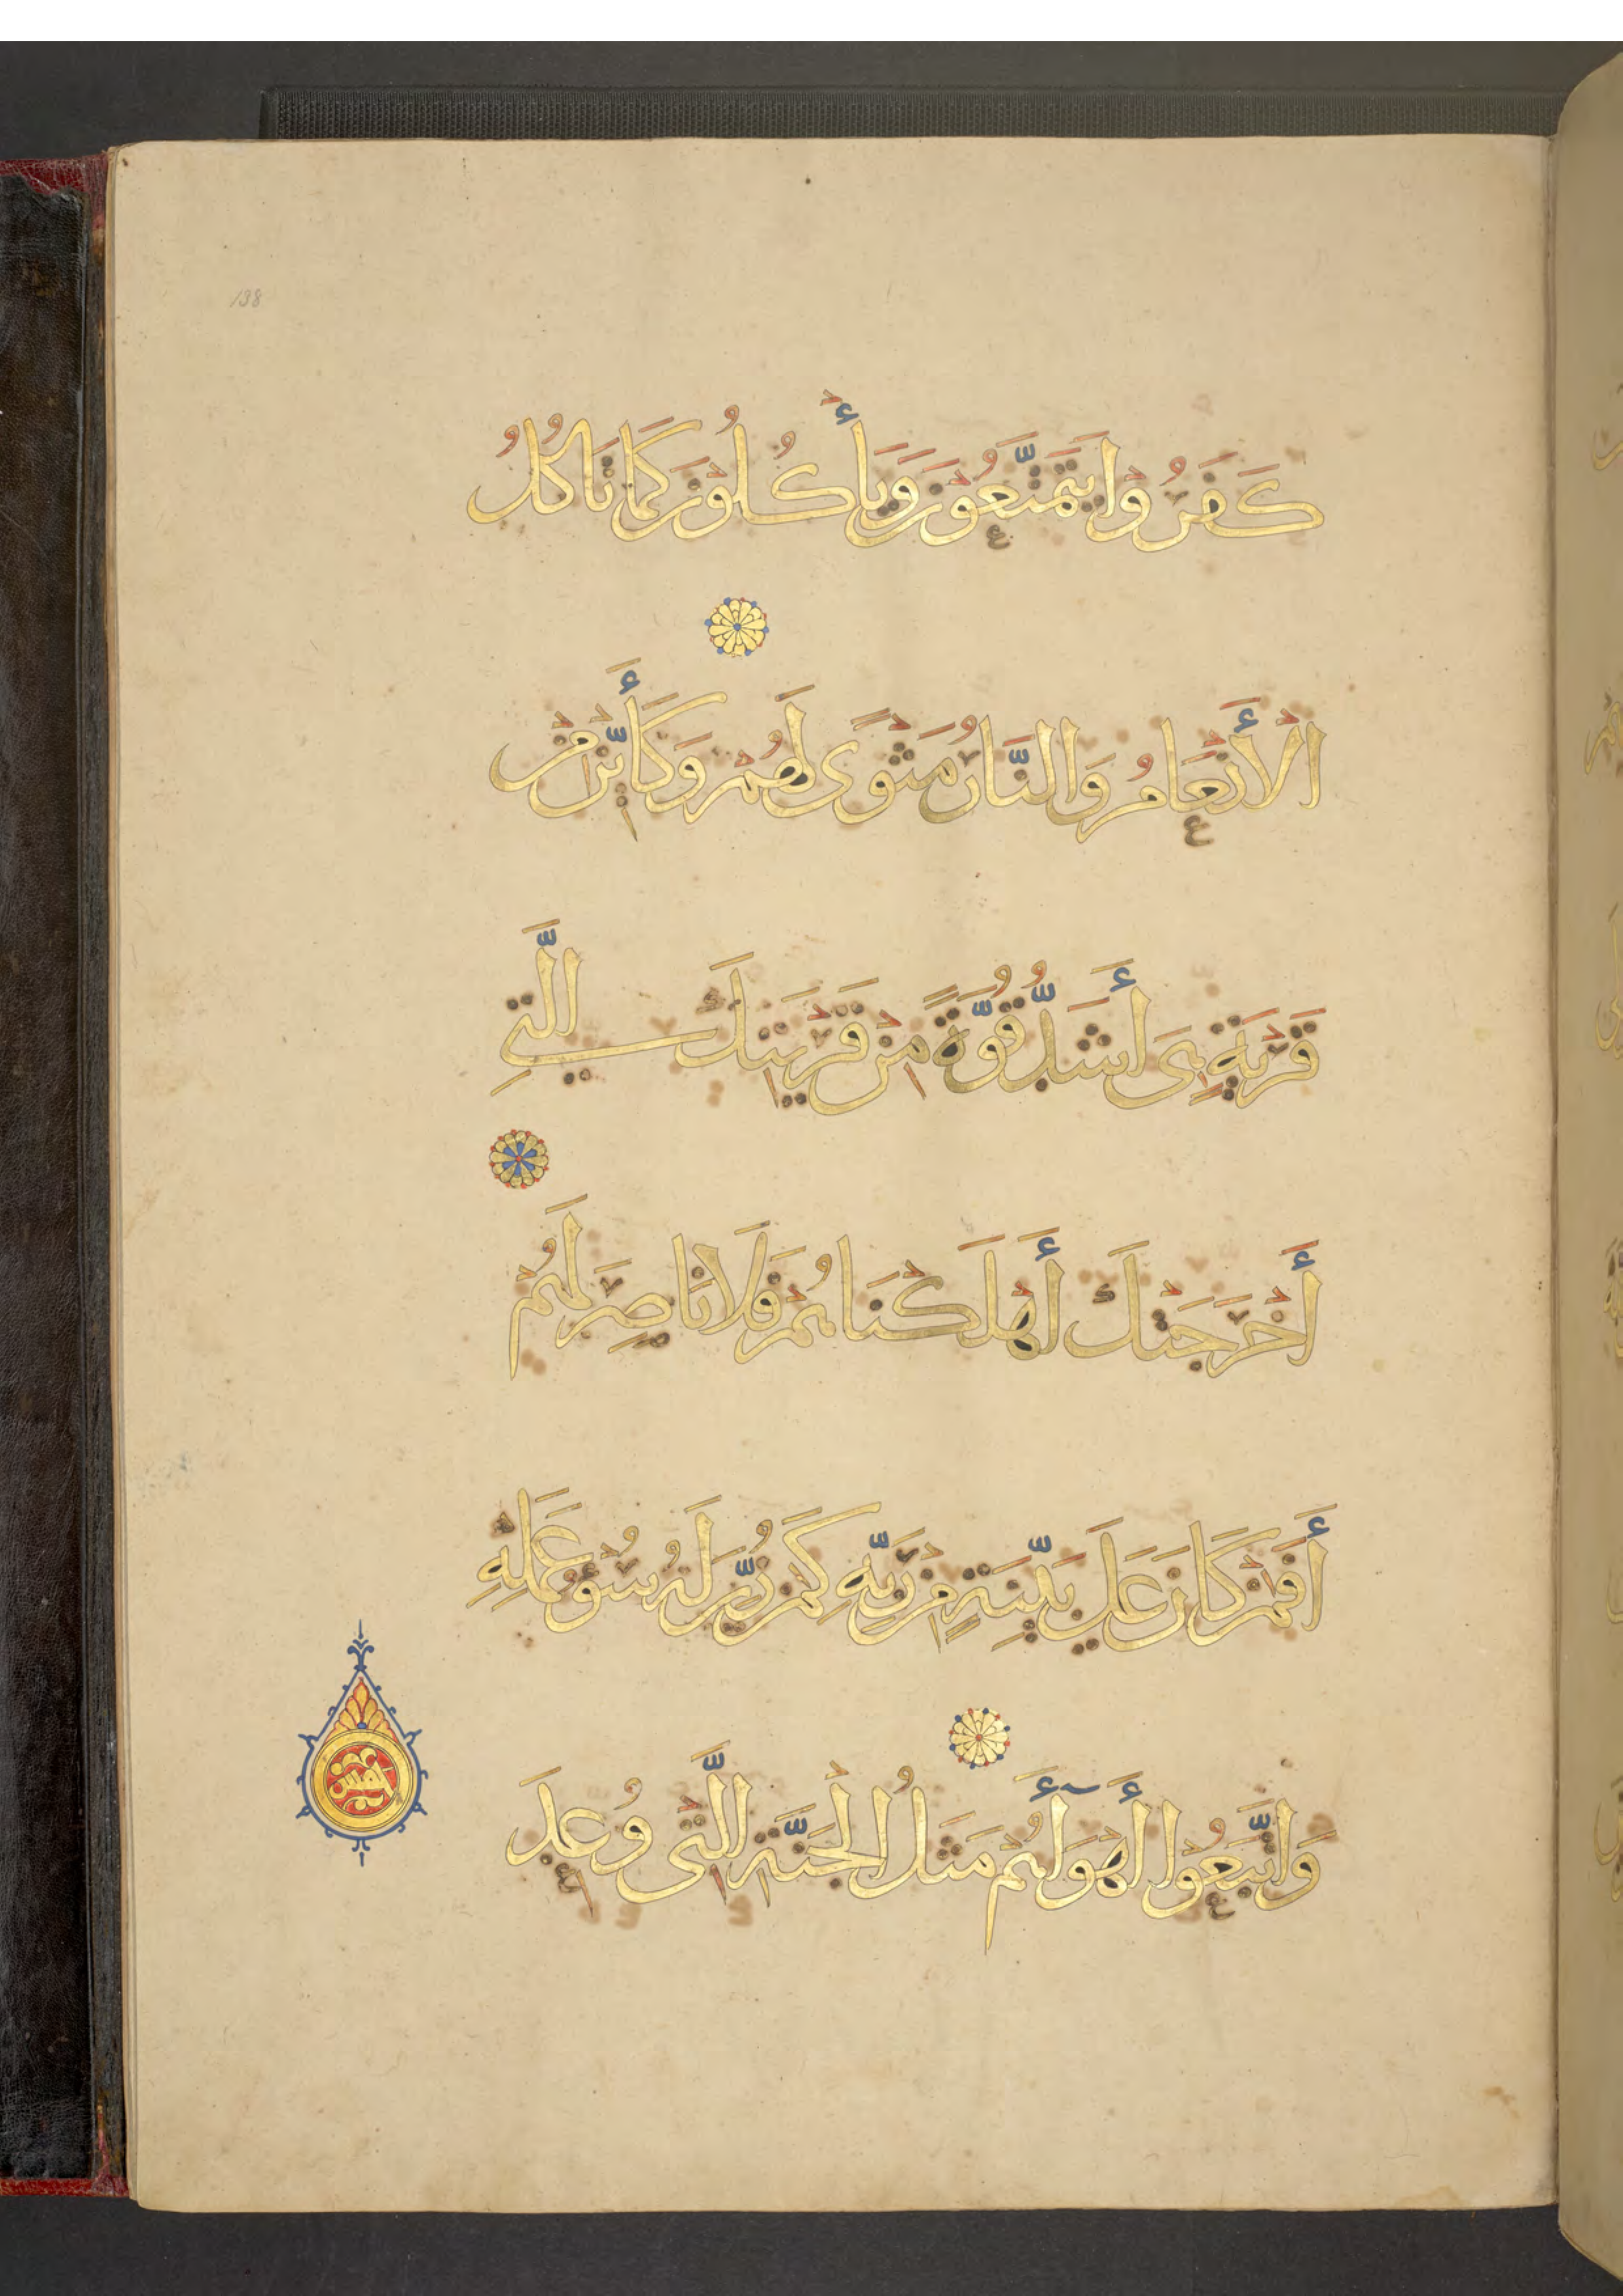 138
كَفَرُوا يَتَمَتَّعُونَ وَيَأْكُلُونَ كَمَا تَأْكُلُ
الْأَنْعَامُ وَالنَّارُ مَثْوًى لَهُمْ وَكَأَيِّنْ مِنْ
قَرْيَةٍ هِيَ أَشَدُّ قُوَّةً مِنْ قَرْيَتِكَ الَّتِي
أَخْرَجَتْكَ أَهْلَكْنَاهُمْ فَلَا نَاصِرَ لَهُمْ
أَفَمَنْ كَانَ عَلَى بَيِّنَةٍ مِنْ رَبِّهِ كَمَنْ زُيِّنَ لَهُ سُوءُ عَمَلِهِ
وَاتَّبَعُوا أَهْوَآءَهُمْ مَثَلُ الْجَنَّةِ الَّتِي وُعِدَ